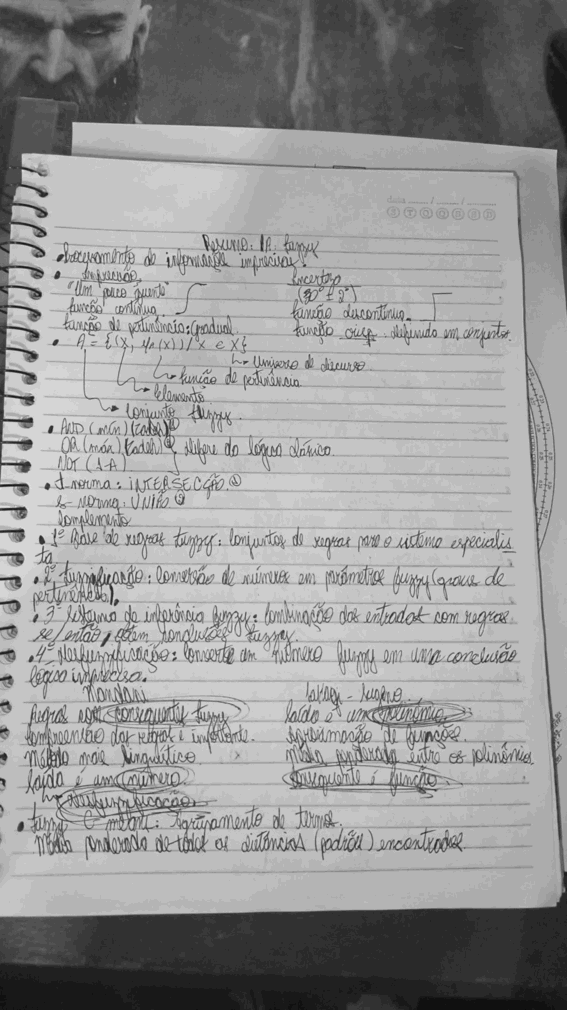 Resumo: IA. fuzzy
• Processamento de informações imprecisas.
• Imprecisão
"Um pouco quente"
função contínua
função de pertinência: gradual.
Incerteza
(30° ± 2°)
função descontínua
função crisp. definido em conjuntos.
• A = {(x, μA(x)) / x ∈ X}
↳ Universo de discurso
↳ função de pertinência
↳ Elemento
↳ Conjunto fuzzy.
• AND (mín) (Zadeh)
OR (máx) (Zadeh) difere da lógica clássica.
NOT (1-A)
• t norma: INTERSECÇÃO.
s- norma: UNIÃO
Complemento
• 1º Base de regras fuzzy: conjuntos de regras para o sistema especialis
ta
• 2º fuzzificação: Conversão de números em parâmetros fuzzy (graus de
pertinência).
• 3º Sistema de inferência fuzzy: Combinação das entradas com regras
se/então, conclusões fuzzy.
• 4º Desfuzzificação: converte um número fuzzy em uma conclusão
lógica imprecisa.
Mandani
Regras com consequentes fuzzy
Compreensão das regras é importante.
Método mais linguístico
Saída é um número
↳ desfuzzificação
Takagi - Sugeno
Saída é um polinômio
Aproximação de funções.
Média ponderada entre os polinômios
Consequente é função
• fuzzy C means: Agrupamento de termos.
Média ponderada de todas as distâncias (padrão) encontradas.